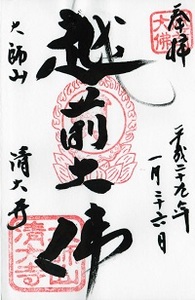 奉拝
大佛
平成二十九年
一月二十六日
越前大佛
大師山
清大寺
大師山
清大寺